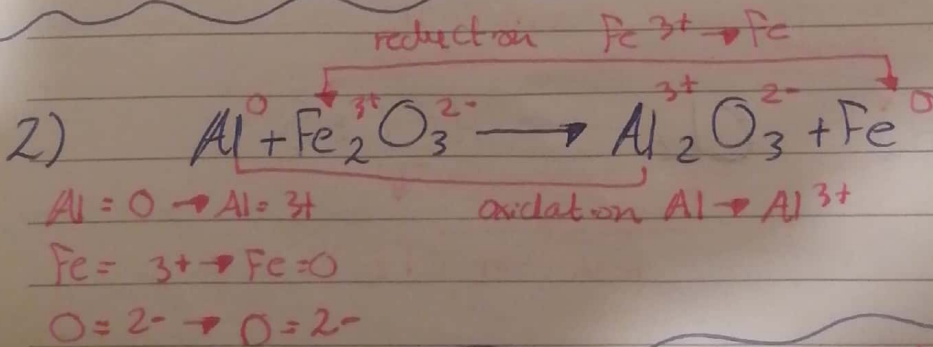 reduction Fe³⁺ → Fe
2) Al⁰ + Fe₂³⁺O₃²⁻ → Al₂³⁺O₃²⁻ + Fe⁰
Al = 0 → Al = 3+ oxidation Al → Al³⁺
Fe = 3+ → Fe = 0
O = 2- → O = 2-